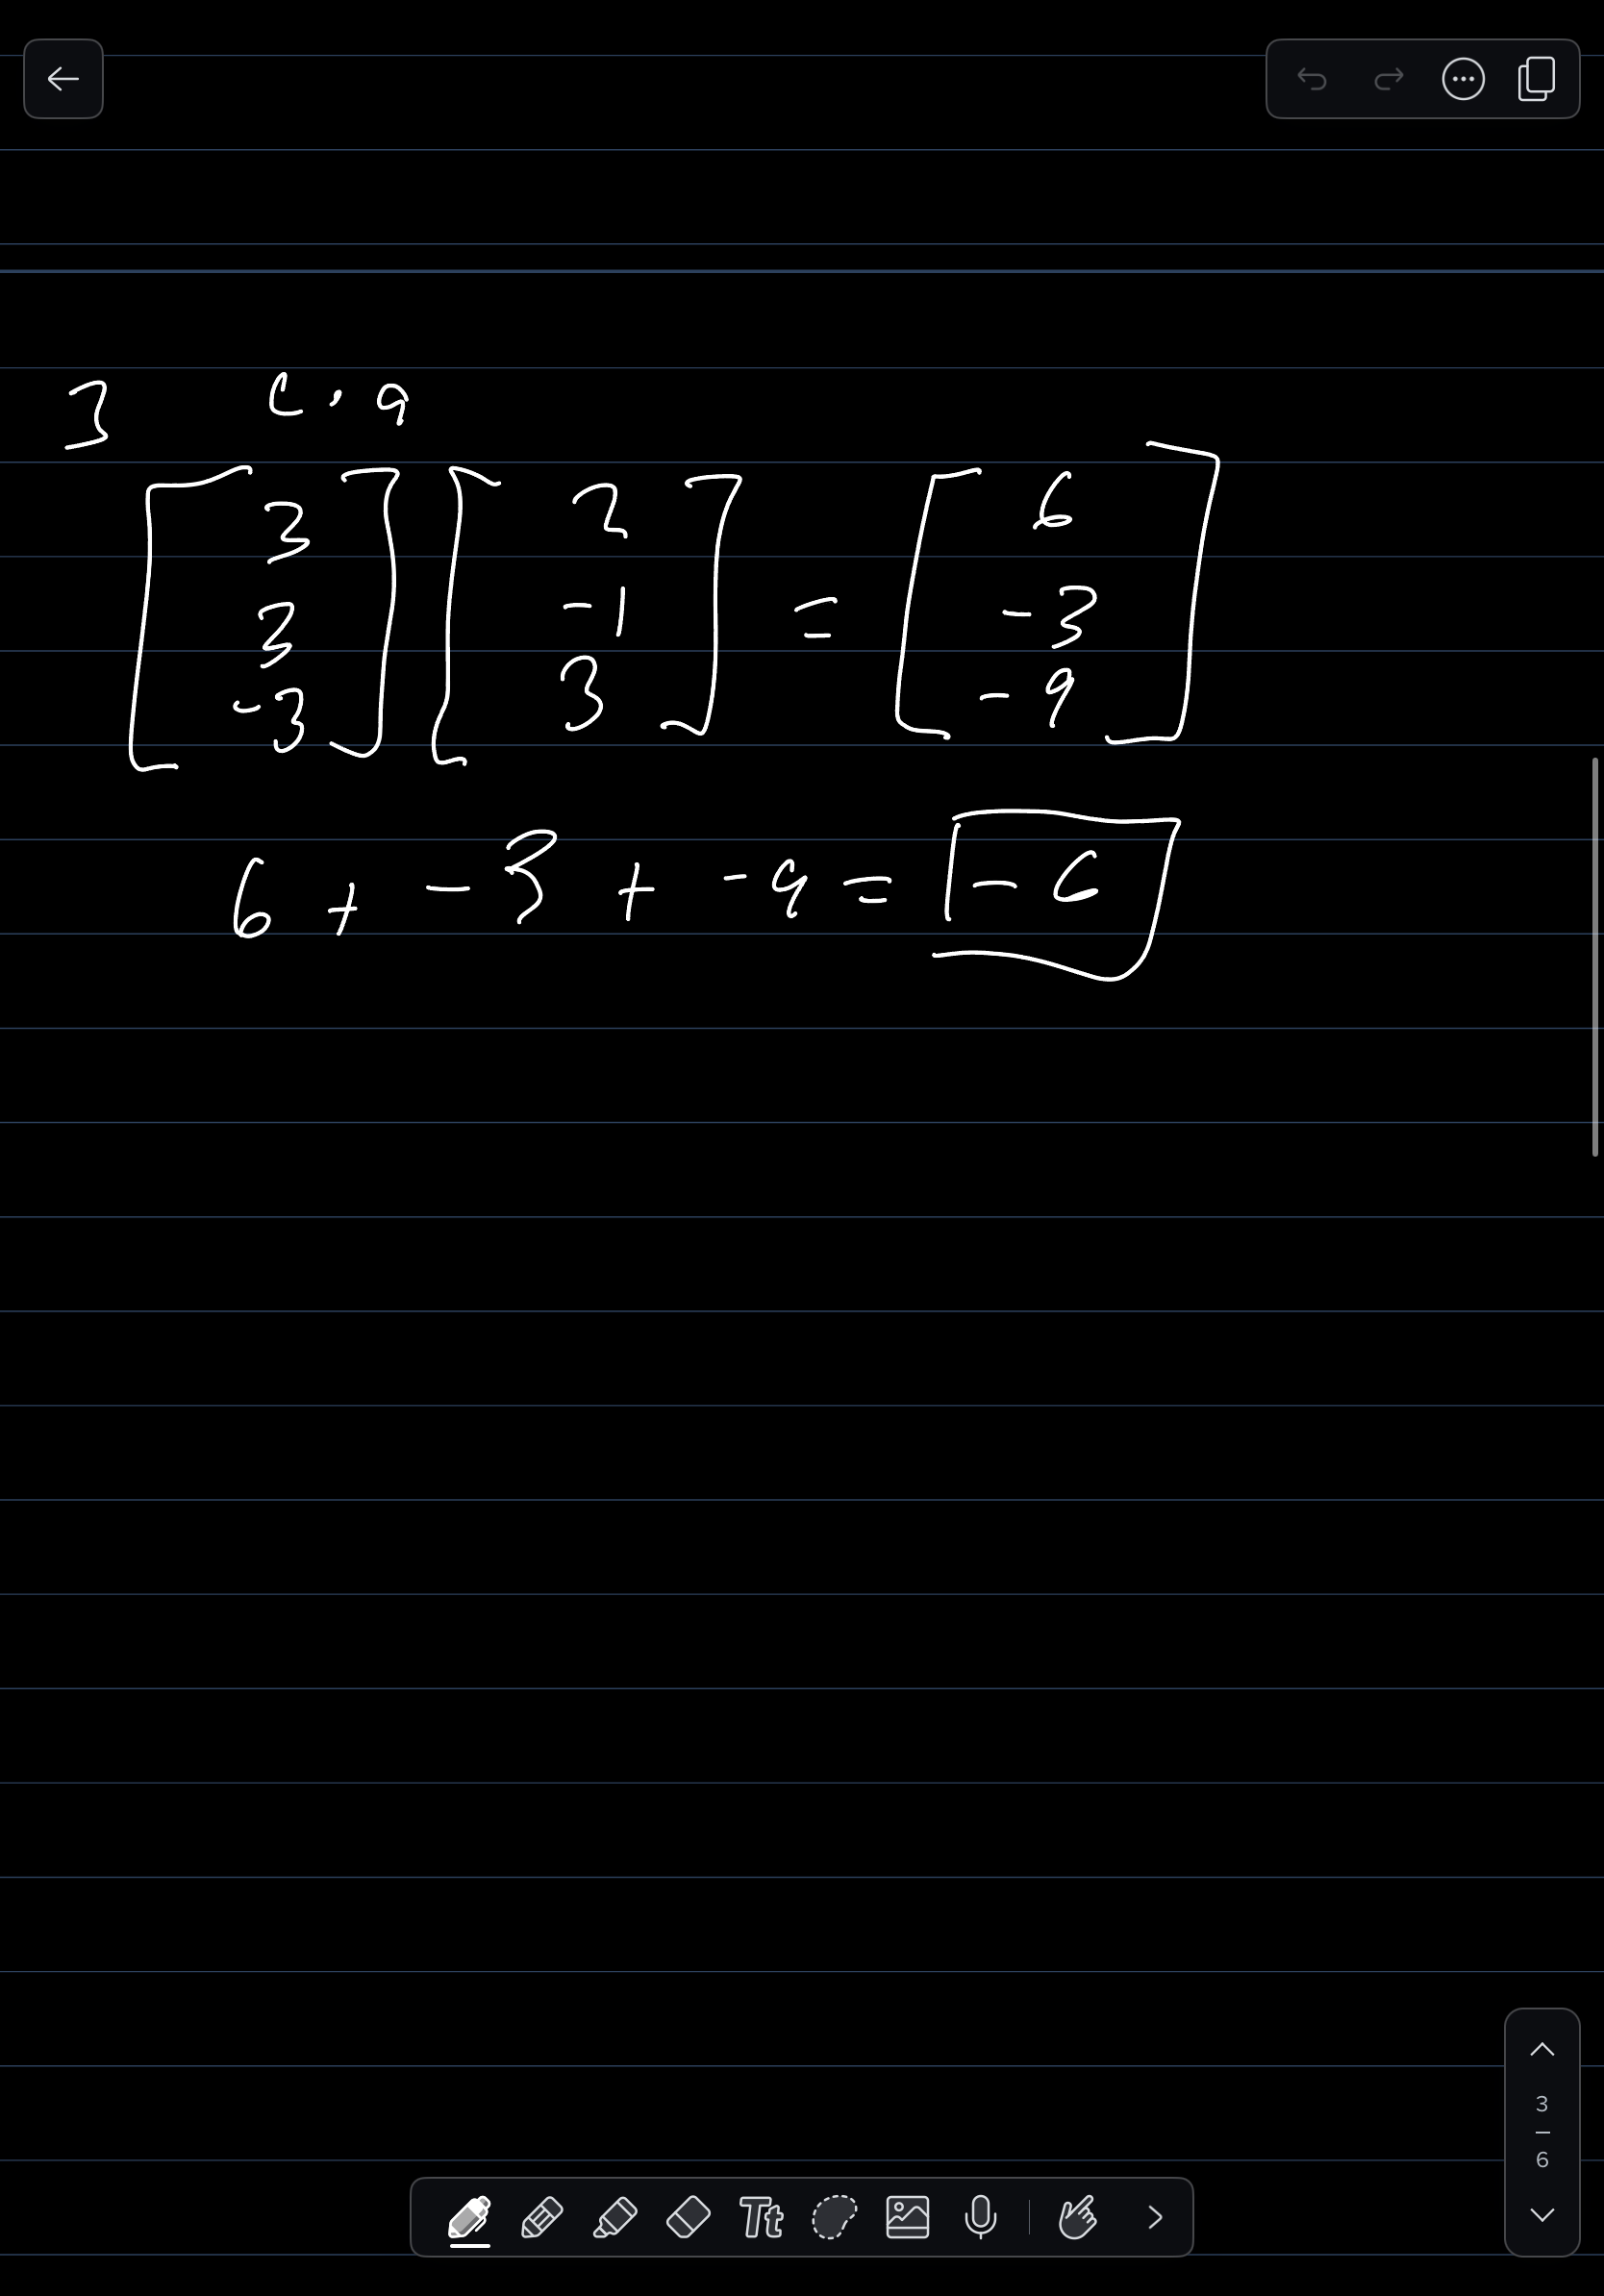 3 c · a
[3 3 -3] [2 -1 3] = [6 -3 -9]
6 + -3 + -9 = -6
Tt
3
6